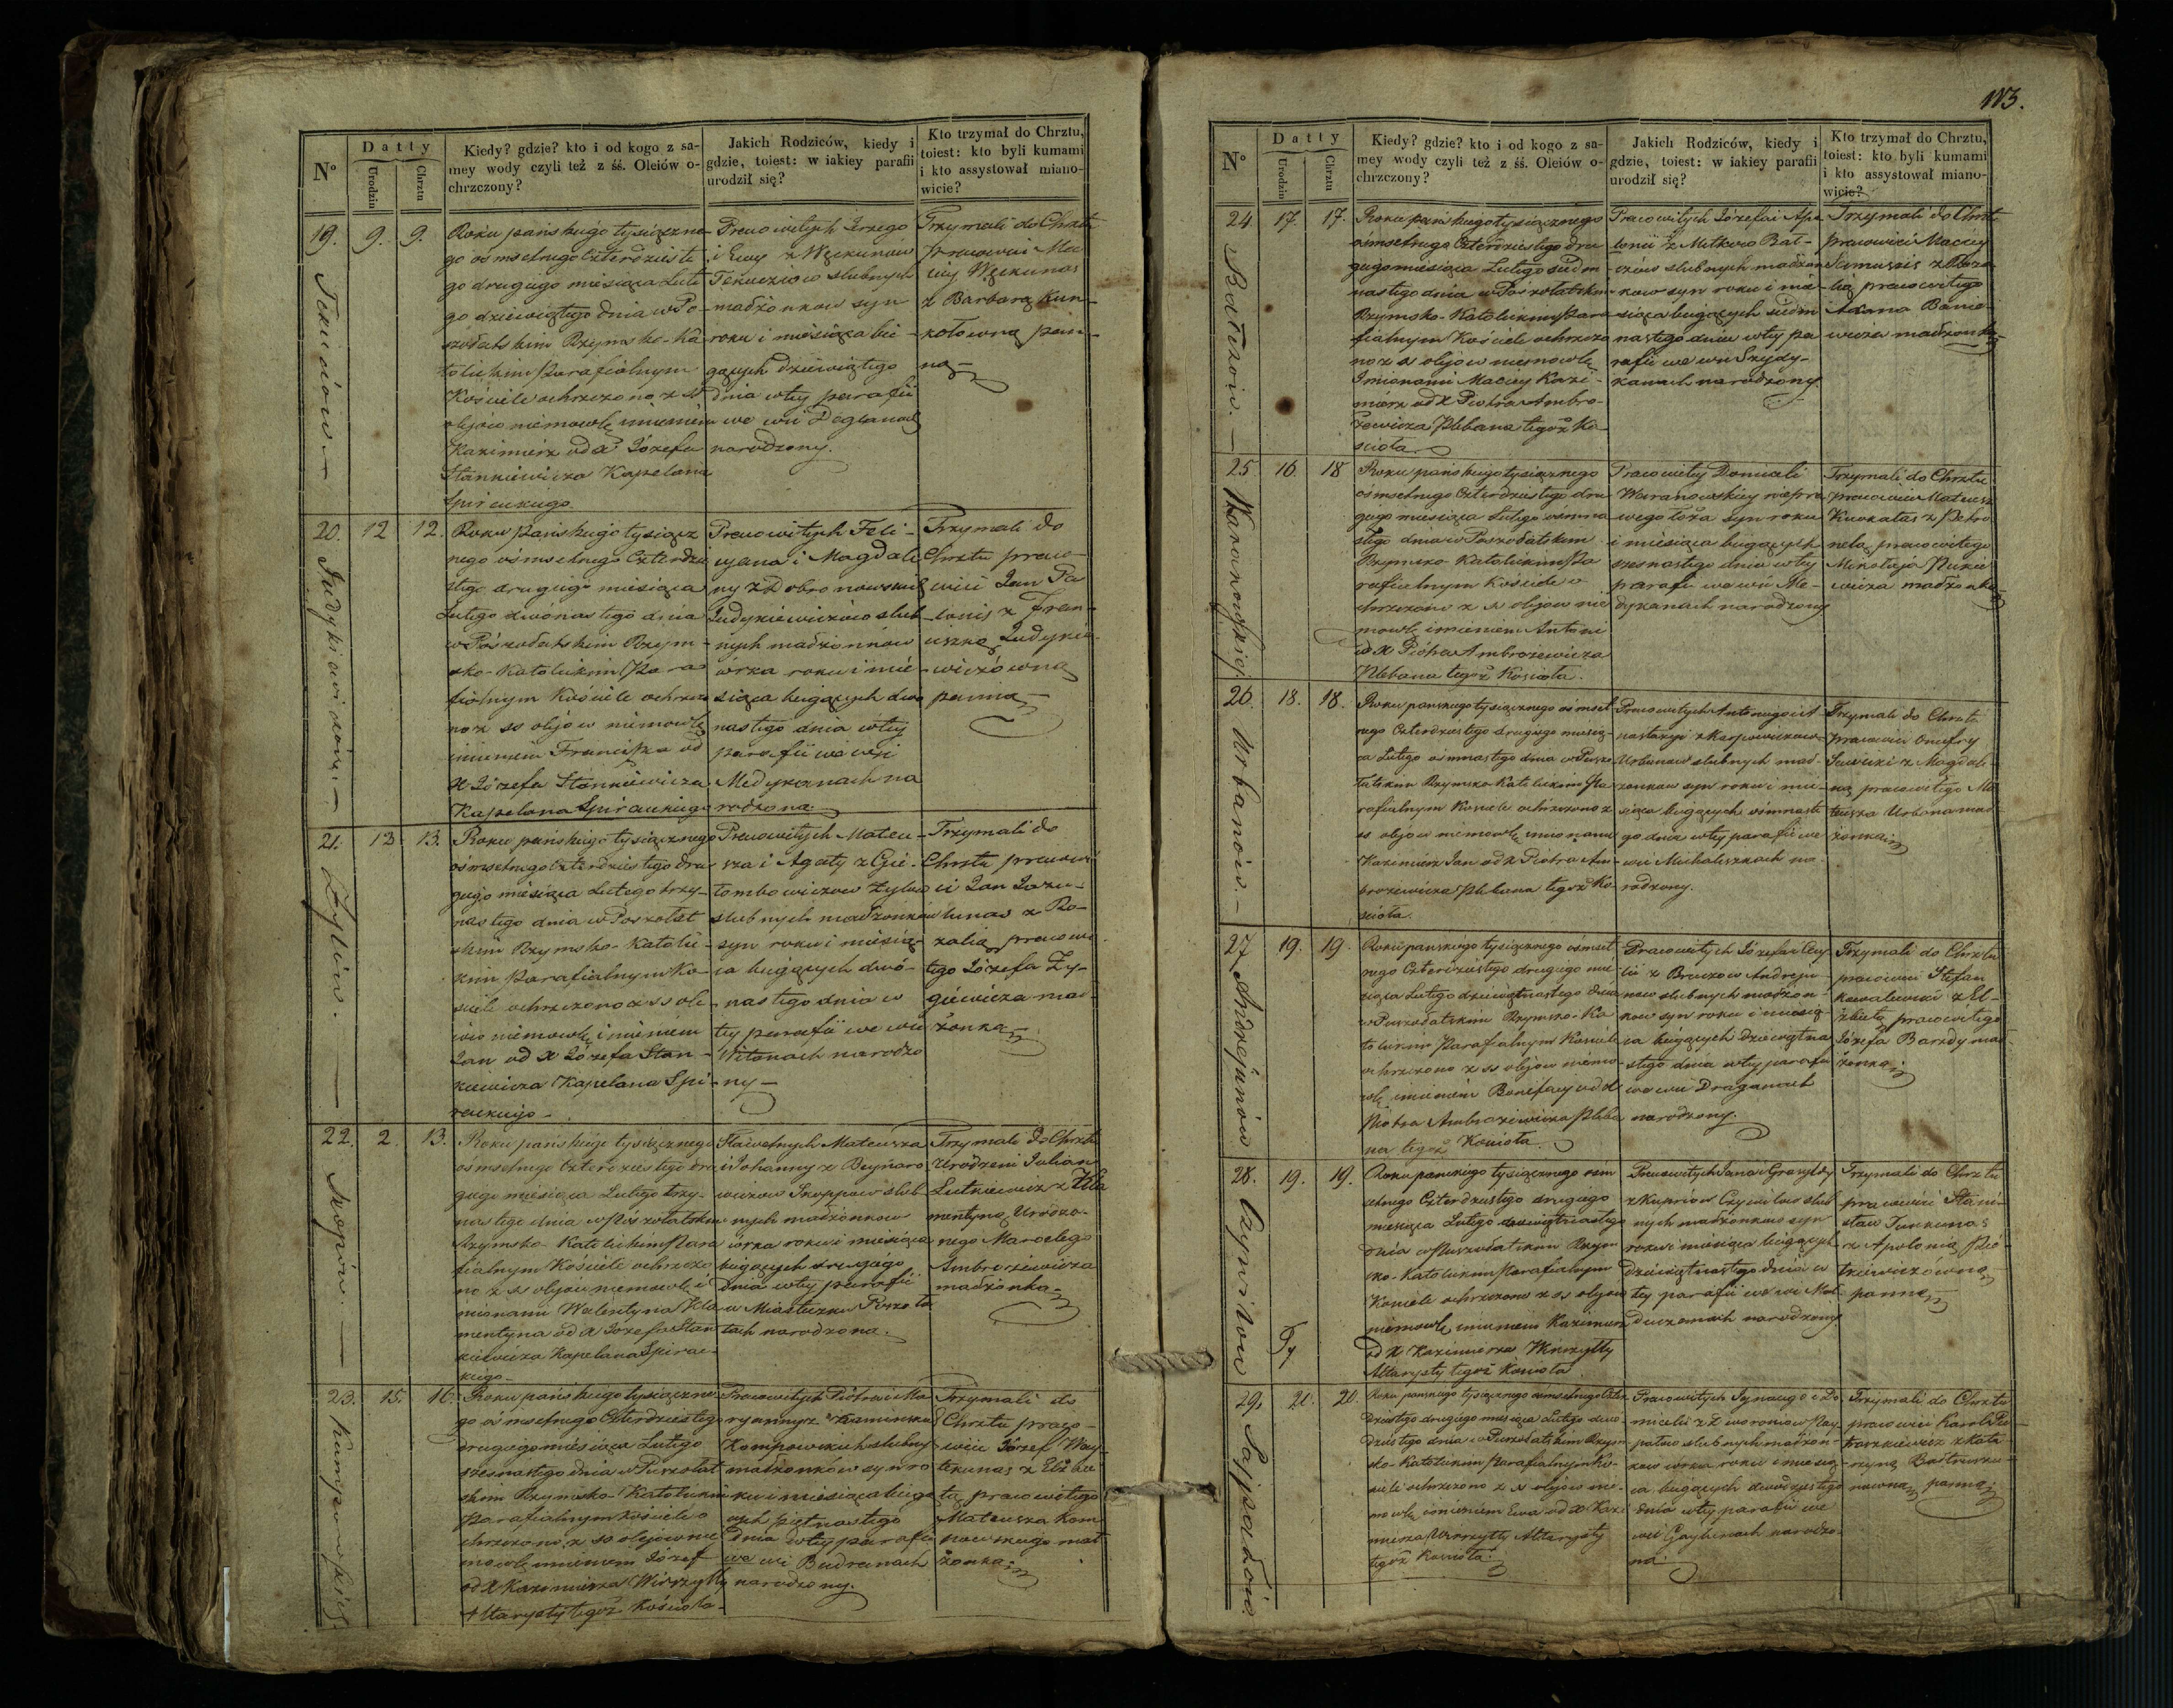 113.
N°
Datty
Urodzin
Chrztu
Kiedy? gdzie? kto i od kogo z sa-
mey wody czyli też z śś. Oleiów o-
chrzczony?
Jakich Rodziców, kiedy i
gdzie, toiest: w iakiey parafii
urodził się?
Kto trzymał do Chrztu,
toiest: kto byli kumami
i kto assystował miano-
wicie?
19.
9.
9.
Roku pańskiego tysiączne-
go ośmsetnego Czterdzieste
go drugiego miesiąca Lute
go dziewiątego dnia w Po-
szołatskim Rzymsko-Ka
tolickim Parafialnym
Kościele ochrzczono z SS
olejów niemowlę imieniem
Kazimierz od X Józefa
Stankiewicza Kapelana
Spiraukiego
Pracowitych Jerzego
i Ewy z
ślubnych
małżonków syn
roku i miesiąca bie-
gących dziewiątego
dnia w tey parafii
we wsi
narodzony.
Trzymali do Chrztu
pracowici Ma
ciey
z Barbarą Kun-
kołowną pan-
ną
20.
12
12.
Judykiewiczów
Roku Pańskiego tysiącz
nego ośmsetnego Czterdzie
stego drugiego miesiąca
Lutego dwónastego dnia
w Pószołatskim Rzym-
sko-Katolickim Para
fialnym Kościele ochrzczo
no z SS olejów niemowlę
imieniem Franciszka od
X Józefa Stankiewicza
Kapelana Spirauckiego
Pracowitych Feli-
cyana i Magdale
ny z Dobronowskich
Judykiewiczów ślub-
nych małżonków
córka roku i mie-
siąca bieżących dwo
nastego dnia w tey
parafii we wsi
Medykanach na
rodzona.
Trzymali do
Chrztu praco-
wici Jan Pa
z Fran-
ciszką Judykie-
wiczówną
panną
21.
13.
13.
Zylów.
Roku pańskiego tysiącznego
ośmsetnego Czterdziestego dru
giego miesiąca Lutego trzy-
nastego dnia w Poszołat
skim Rzymsko-Katolic-
kim Parafialnym Ko-
ściele ochrzczono z SS ole
jów niemowlę imieniem
Jan od X Józefa Stan-
kiewicza Kapelana Spi-
rauckiego
Pracowitych Mateu-
sza i Agaty z Gie-
tombowiczow Zylow
ślubnych małżonków
syn roku i miesią-
ca bieżących dwó-
nastego dnia w
tey parafii we wsi
Witanach narodzo
ny
Trzymali do
Chrztu pracowi
ci Jan
z Ro-
zalią pracowi
tego Józefa Zy-
giewicza mał-
żonką
22.
2.
13.
Skopów.
Roku pańskiego tysiącznego
ośmsetnego Czterdziestego dru
giego miesiąca Lutego trzy-
nastego dnia w Pószołatskim
Rzymsko-Katolickim Para
fialnym Kościele ochrzczo
no z SS olejów niemowlę i
mionami Walentyna Kle
mentyna od X Józefa Stan
kiewicza Kapelana Spirau-
kiego
Sławetnych Mateusza
i Johanny z Beynaro
wiczow Skoppow ślub
nych małżonków
córka roku i miesiąca
bieżących drugiego
dnia w tey parafii
w Miasteczku Poszoła
tach narodzona.
Trzymali do Chrztu
Urodzeni Julian
Lutkiewicz z Kle
mentyną Urodzo-
nego Marcelego
Ambrożewicza
małżonką
23.
15.
16.
Kompowskich
Roku pańskiego tysiączne
go ośmsetnego Czterdziestego
drugiego miesiąca Lutego
szesnastego dnia w Poszołat
skim Rzymsko-Katolickim
Parafialnym Kościele o
chrzczono z SS olejów nie
mowlę imieniem Józef
od X Kazimierza Wierzytty
Altarysty tegoż Kościoła
Pracowitych Piotra i Ma
ryanny z Kaminskich
Kompowskich ślubnych
małżonków syn ro
ku i miesiąca bieżą
cych piętnastego
dnia w tey parafii
we wsi Budranach
narodzony.
Trzymali do
Chrztu praco-
wici Józef Way-
tekunas z Elżbie
tą pracowitego
Mateusza Kom
powskiego mał-
żonką
N°
Datty
Urodzin
Chrztu
Kiedy? gdzie? kto i od kogo z sa-
mey wody czyli też z śś. Oleiów o-
chrzczony?
Jakich Rodziców, kiedy i
gdzie, toiest: w iakiey parafii
urodził się?
Kto trzymał do Chrztu,
toiest: kto byli kumami
i kto assystował miano-
wicie?
24
17.
17.
Roku pańskiego tysiącznego
ośmsetnego Czterdziestego dru
giego miesiąca Lutego siedm
nastego dnia w Poszołatskim
Rzymsko-Katolickim Para
fialnym Kościele ochrzczo
no z SS olejów niemowlę
Imionami Maciey Kazi-
mierz od X Piotra Ambro-
żewicza Plebana tegoż Ko
ścioła
Pracowitych Józefa i Apo
lonii z
ślubnych małżon
kow syn roku i mie
siąca bieżących siedm
nastego dnia w tey pa
rafii we wsi Szydy-
kanach narodzony.
Trzymali do Chrztu
pracowici Maciey
z Roza
lią pracowitego
Adama Banie
wicza małżonką
25.
16.
18
Waranowskiej
Roku pańskiego tysiącznego
ośmsetnego Czterdziestego dru
giego miesiąca Lutego ośmna
stego dnia w Poszołatskim
Rzymsko-Katolickim Pa
rafialnym Kościele o
chrzczono z SS olejów nie
mowlę imieniem Antoni
od X Piotra Ambrożewicza
Plebana tegoż Kościoła.
Pracowitey Domiceli
Waranowskiey niepra
wego łoża syn roku
i miesiąca bieżących
szesnastego dnia w tey
parafii we wsi Me-
dykanach narodzony
Trzymali do Chrztu
pracowici Mateusz
z Petro
nelą pracowitego
Mikołaja
małżonką
26.
18.
18.
Urbanów.
Roku pańskiego tysiącznego ośmset
nego Czterdziestego drugiego miesią-
ca Lutego ośmnastego dnia w Poszo-
łatskim Rzymsko-Katolickim Pa
rafialnym Kościele ochrzczono z
SS olejów niemowlę imionami
Kazimierz Jan od X Piotra Am-
brożewicza Plebana tegoż Ko-
ścioła.
Pracowitych Antoniego i A
nastazyi z Karpowiczow
Urbanow ślubnych mał-
żonkow syn roku i mie-
siąca bieżących ośmnaste
go dnia w tey parafii we
wsi Michaliszkach na
rodzony.
Trzymali do Chrztu
pracowici Onufry
z Magdale-
ną pracowitego Ma
teusza Urbana mał
żonką
27.
19.
19.
Andrejunów
Roku pańskiego tysiącznego ośmset
nego Czterdziestego drugiego mie
siąca Lutego dziewiętnastego dnia
w Poszołatskim Rzymsko-Ka
tolickim Parafialnym Kościele
ochrzczono z SS olejów niemo
wlę imieniem Bonifacy od X
Piotra Ambrożewicza Pleba
na tegoż Kościoła.
Pracowitych Józefa i Cecy
lii z Andreju-
now ślubnych małżon-
kow syn roku i miesią-
ca bieżących dziewiętna
stego dnia w tey parafii
we wsi Draganach
narodzony.
Trzymali do Chrztu
pracowici Stefan
Kowalewski z El-
żbietą pracowitego
Józefa Barzdy mał
żonką
28.
19.
19.
Roku pańskiego tysiącznego ośm
setnego Czterdziestego drugiego
miesiąca Lutego dziewiętnastego
dnia w Poszołatskim Rzym
sko-Katolickim Parafialnym
Kościele ochrzczono z SS olejow
niemowlę imieniem Kazimierz
od X Kazimierza Wierzytty
Altarysty tegoż Kościoła
Pracowitych Jana i Grasyldy
ślub
nych małżonkow syn
roku i miesiąca bieżących
dziewiętnastego dnia w
tey parafii we wsi
narodzony
Trzymali do Chrztu
pracowici Stani-
sław Tunkunas
z Apolonią Pio-
trowiczówną
panną
29.
20.
20.
Roku pańskiego tysiącznego ośmsetnego Czter
dziestego drugiego miesiąca Lutego dwu-
dziestego dnia w Poszołatskim Rzym
sko-Katolickim Parafialnym Ko-
ściele ochrzczono z SS olejów nie-
mowlę imieniem Ewa od X Kazi
mierza Wierzytty Altarysty
tegoż Kościoła.
Pracowitych Ignacego i Do
miceli z
ślubnych małżon-
kow córka roku i miesią-
ca bieżących dwudziestego
dnia w tey parafii we
wsi narodzo-
na.
Trzymali do Chrztu
pracowici Karol Pie
traszkiewicz z Kata-
rzyną
panną